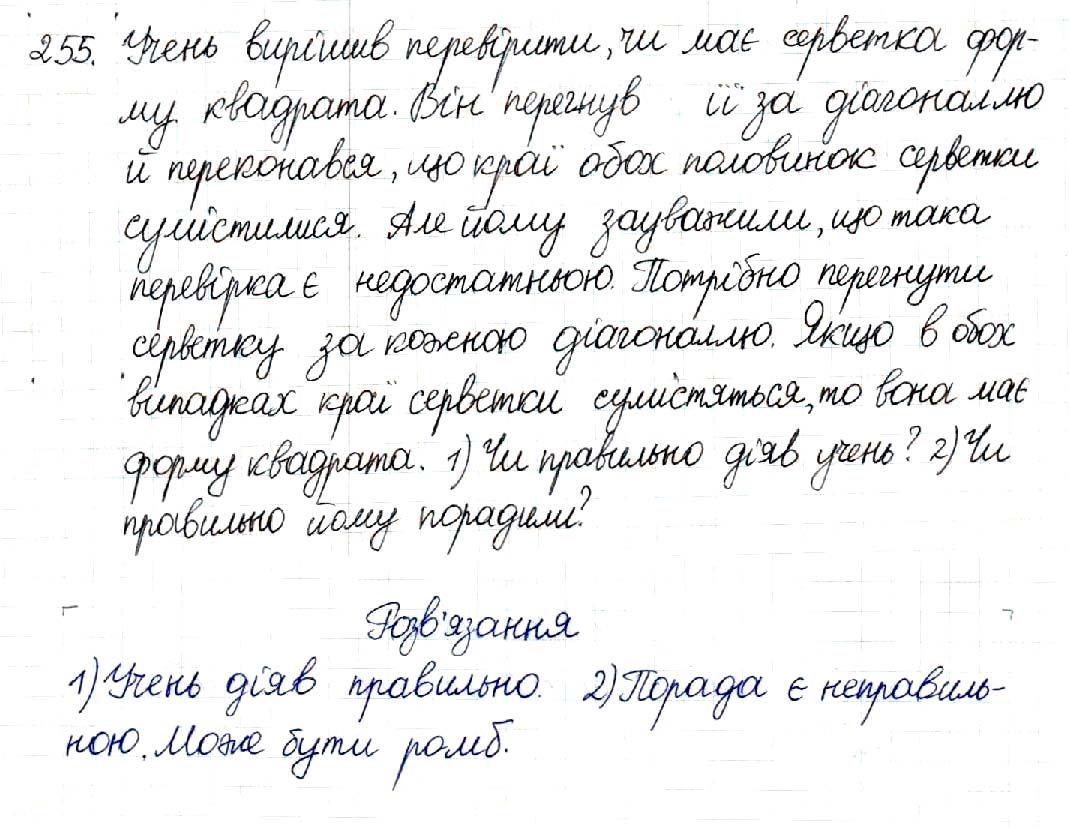 255. Учень вирішив перевірити, чи має серветка фор-
му квадрата. Він перегнув її за діагоналлю
й переконався, що краї обох половинок серветки
сумістилися. Але йому зауважили, що така
перевірка є недостатньою. Потрібно перегнути
серветку за кожною діагоналлю. Якщо в обох
випадках краї серветки сумістяться, то вона має
форму квадрата. 1) Чи правильно діяв учень? 2) Чи
правильно йому порадили?
Розв'язання
1) Учень діяв правильно. 2) Порада є неправиль-
ною. Може бути ромб.